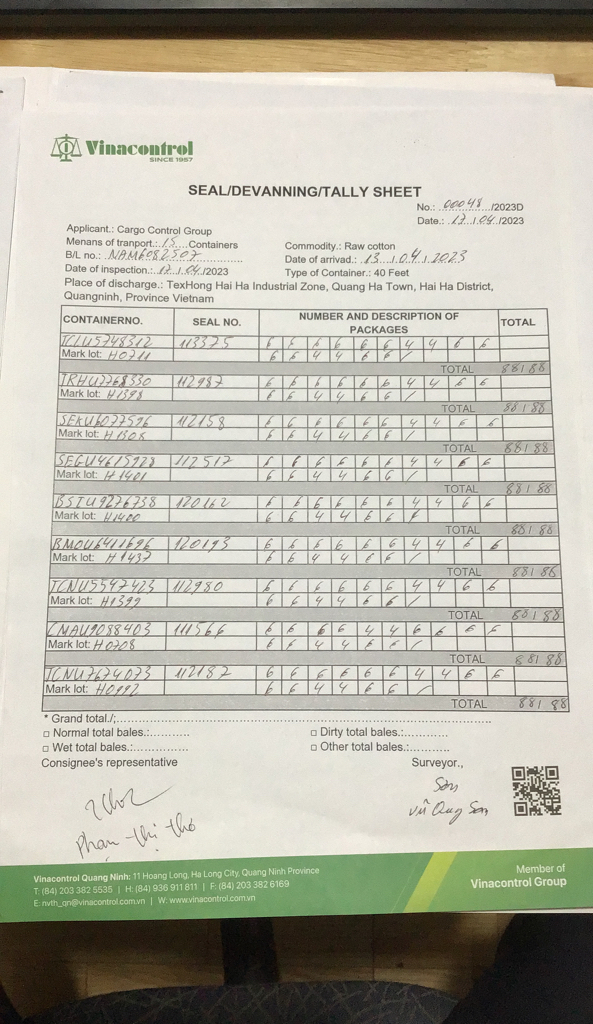 Vinacontrol
SINCE 1957
SEAL/DEVANNING/TALLY SHEET
No.: 00048 /2023D
Date.: 17 / 04 /2023
Applicant.: Cargo Control Group
Menans of tranport.: 15 Containers
Commodity.: Raw cotton
B/L no.: NAM6082507
Date of arrival.: 13 / 04 / 2023
Date of inspection.: 17 / 04 /2023
Type of Container.: 40 Feet
Place of discharge.: TexHong Hai Ha Industrial Zone, Quang Ha Town, Hai Ha District,
Quangninh, Province Vietnam
CONTAINERNO. SEAL NO. NUMBER AND DESCRIPTION OF PACKAGES TOTAL
TCLU5748312 113375 6 6 6 6 6 6 4 4 6 6
Mark lot: H0711 6 6 4 4 6 6 /
TOTAL 88 / 88
TRHU7768330 112987 6 6 6 6 6 6 4 4 6 6
Mark lot: H1398 6 6 4 4 6 6 /
TOTAL 88 / 88
SEKU6077596 112158 6 6 6 6 6 6 4 4 6 6
Mark lot: 6 6 4 4 6 6 /
TOTAL 88 / 88
SEGU4615928 112517 6 6 6 6 6 6 4 4 6 6
Mark lot: H1401 6 6 4 4 6 6 /
TOTAL 88 / 88
BSIU9276738 120162 6 6 6 6 6 6 4 4 6 6
Mark lot: H1400 6 6 4 4 6 6
TOTAL 88 / 88
BMOU6411696 120193 6 6 6 6 6 6 4 4 6 6
Mark lot: H1437 6 6 4 4 6 6 /
TOTAL 88 / 88
TCNU5547423 112980 6 6 6 6 6 6 4 4 6 6
Mark lot: H1399 6 6 4 4 6 6 /
TOTAL 88 / 88
CMAU9088403 111566 6 6 6 6 4 4 6 6 6 6
Mark lot: H0708 6 6 4 4 6 6 /
TOTAL 88 / 88
TCNU7674073 112187 6 6 6 6 6 6 4 4 6 6
Mark lot: H0992 6 6 4 4 6 6 /
TOTAL 88 / 88
* Grand total./;
□ Normal total bales.:
□ Dirty total bales.:
□ Wet total bales.:
□ Other total bales.:
Consignee's representative
Surveyor.,
Sơn
Vũ Quang Sơn
Phan Thị Thơ
Vinacontrol Quang Ninh: 11 Hoang Long, Ha Long City, Quang Ninh Province
T: (84) 203 382 5535 | H: (84) 936 911 811 | F: (84) 203 382 6169
E: nvth_qn@vinacontrol.com.vn | W: www.vinacontrol.com.vn
Member of
Vinacontrol Group